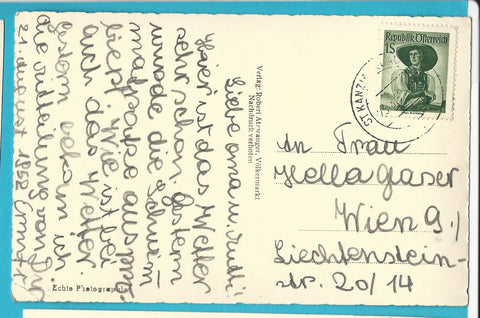 Liebe Oma u. Trudi!
Hier ist das Wetter
sehr schön. Gestern
wurde die Schwim
matratze auspro
biert. Wie ist bei
auch das Wetter.
Gestern bekam ich
die
21 august 1952
Echte Photographie
Verlag: Robert Atzwanger, Völkermarkt
Nachdruck verboten
Republik Österreich
1S
ST. KANZIAN
An Frau
Hella Gaser
Wien 9./
Liechtenstein-
str. 20/14